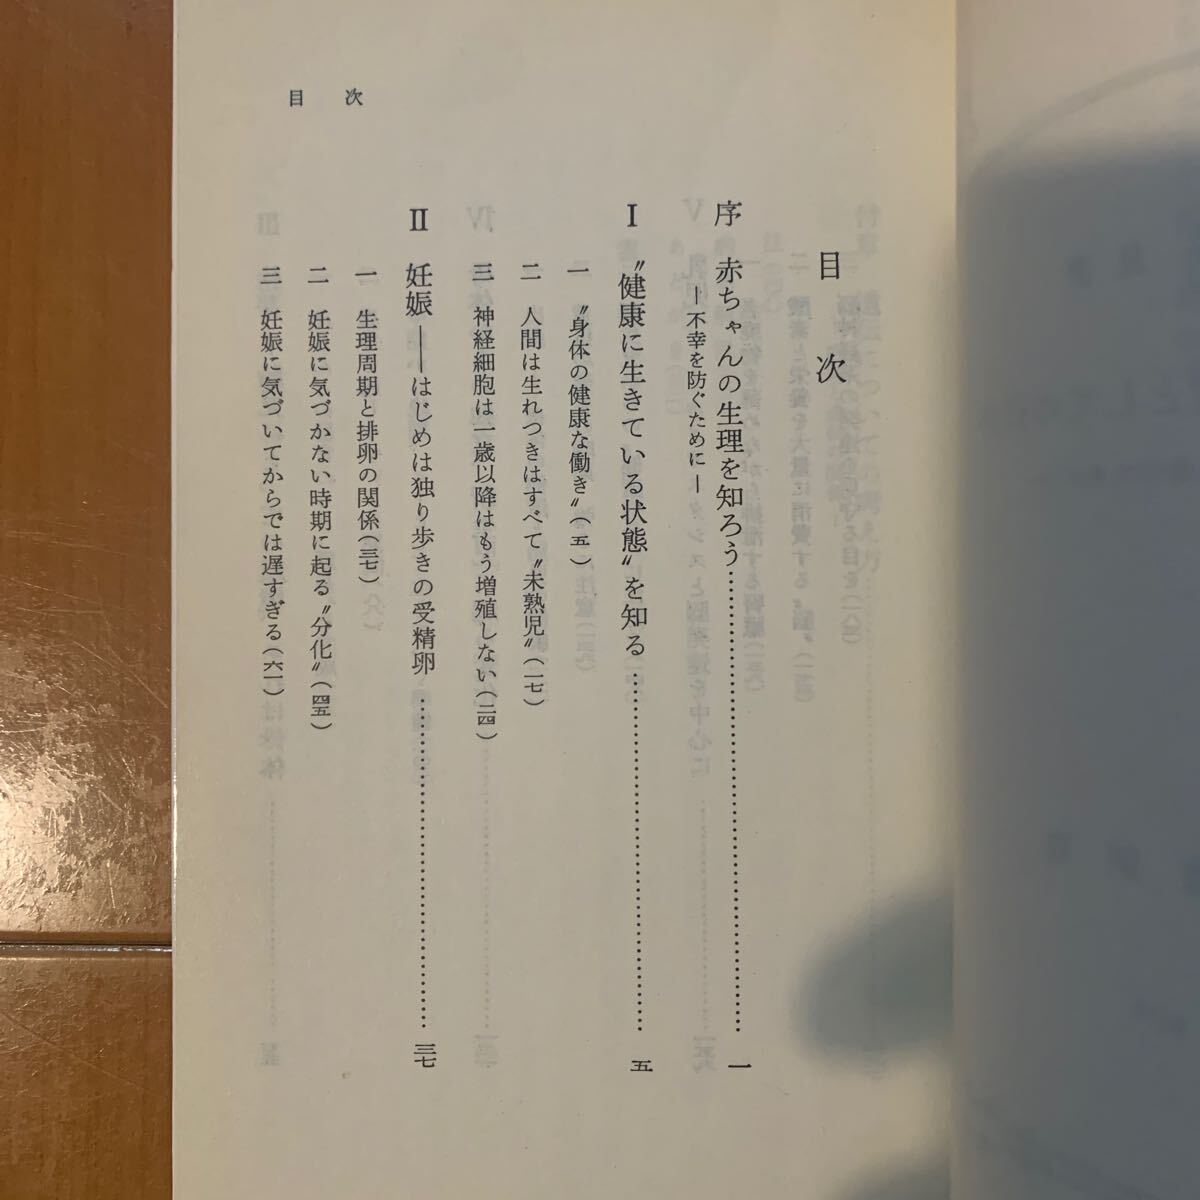 目次
目次
序 赤ちゃんの生理を知ろう……………………………………一
―不幸を防ぐために―
Ⅰ 〝健康に生きている状態〟を知る……………………………五
一 〝身体の健康な働き〟（五）
二 人間は生れつきはすべて〝未熟児〟（一七）
三 神経細胞は一歳以降はもう増殖しない（二四）
Ⅱ 妊娠――はじめは独り歩きの受精卵……………………………三七
一 生理周期と排卵の関係（三七）
二 妊娠に気づかない時期に起る〝分化〟（四五）
三 妊娠に気づいてからでは遅すぎる（六一）